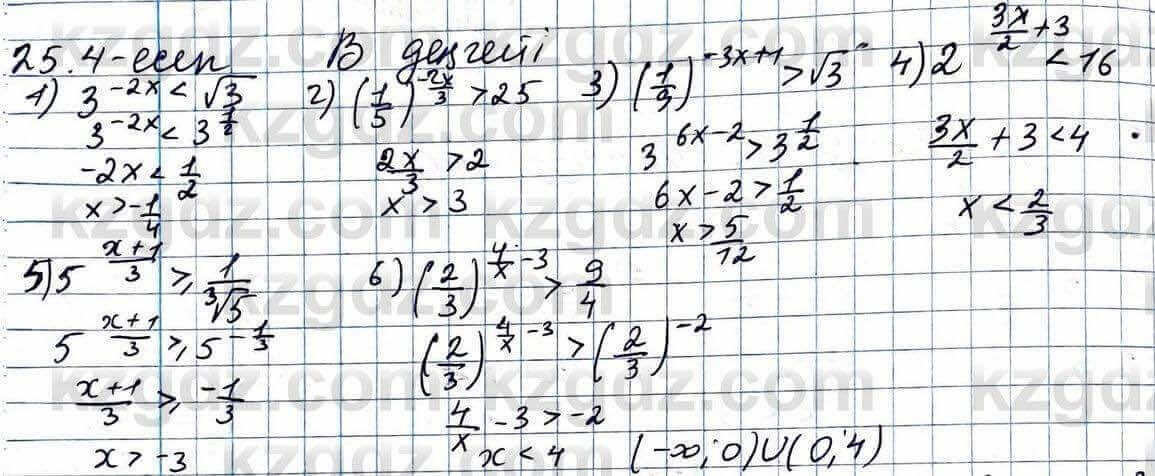 25.4-есеп В деңгейі
1) 3^{-2x} < √3
3^{-2x} < 3^{1/2}
-2x < 1/2
x > -1/4
2) (1/5)^{-2x/3} > 25
2x/3 > 2
x > 3
3) (1/9)^{-3x+1} > √3
3^{6x-2} > 3^{1/2}
6x-2 > 1/2
x > 5/12
4) 2^{3x/2+3} < 16
3x/2 + 3 < 4
x < 2/3
5) 5^{(x+1)/3} ≥ 1/∛5
5^{(x+1)/3} ≥ 5^{-1/3}
(x+1)/3 ≥ -1/3
x > -3
6) (2/3)^{4/x-3} > 9/4
(2/3)^{4/x-3} > (2/3)^{-2}
4/x - 3 > -2
x < 4 (-∞; 0)∪(0; 4)
kzgdz.com